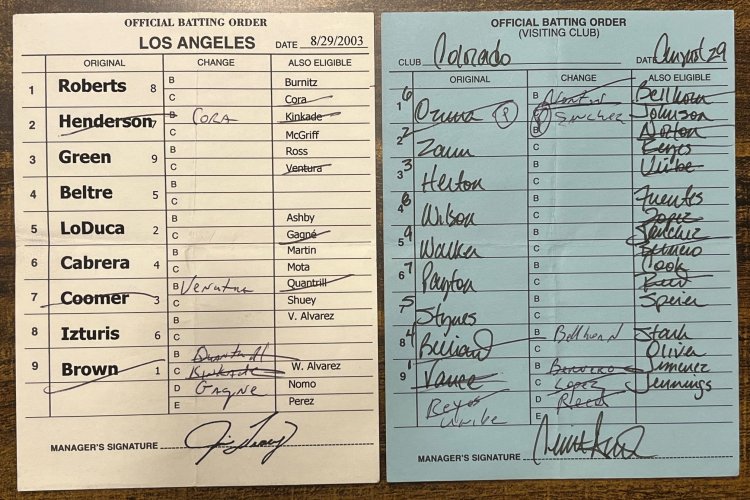 OFFICIAL BATTING ORDER
LOS ANGELES DATE 8/29/2003
ORIGINAL CHANGE ALSO ELIGIBLE
1 Roberts 8 B Burnitz
C Cora
2 Henderson 7 B CORA Kinkade
C McGriff
3 Green 9 B Ross
C Ventura
4 Beltre 5 B
C
5 LoDuca 2 B Ashby
C Gagné
6 Cabrera 4 B Martin
C Mota
7 Coomer 3 B Ventura Quantrill
C Shuey
8 Izturis 6 B V. Alvarez
C
9 Brown 1 B Quantrill
C Kinkade W. Alvarez
D Gagne Nomo
E Perez
MANAGER'S SIGNATURE
OFFICIAL BATTING ORDER
(VISITING CLUB)
CLUB Colorado DATE August 29
ORIGINAL CHANGE ALSO ELIGIBLE
6 B Norton Bellhorn
1 Ozuna 8 Sanchez Johnson
2 B Norton
2 Zaun C Reyes
3 3 Helton B Uribe
C
4 8 Wilson B Fuentes
C Lopez
5 9 Walker B Sanchez
C Bernero
6 7 Payton B Cook
C Reed
7 5 Stynes B Speier
C
8 4 Belliard B Bellhorn Stark
C Oliver
9 1 Vance B Bernero Jimenez
C Lopez Jennings
Reyes D Reed
Uribe E
MANAGER'S SIGNATURE